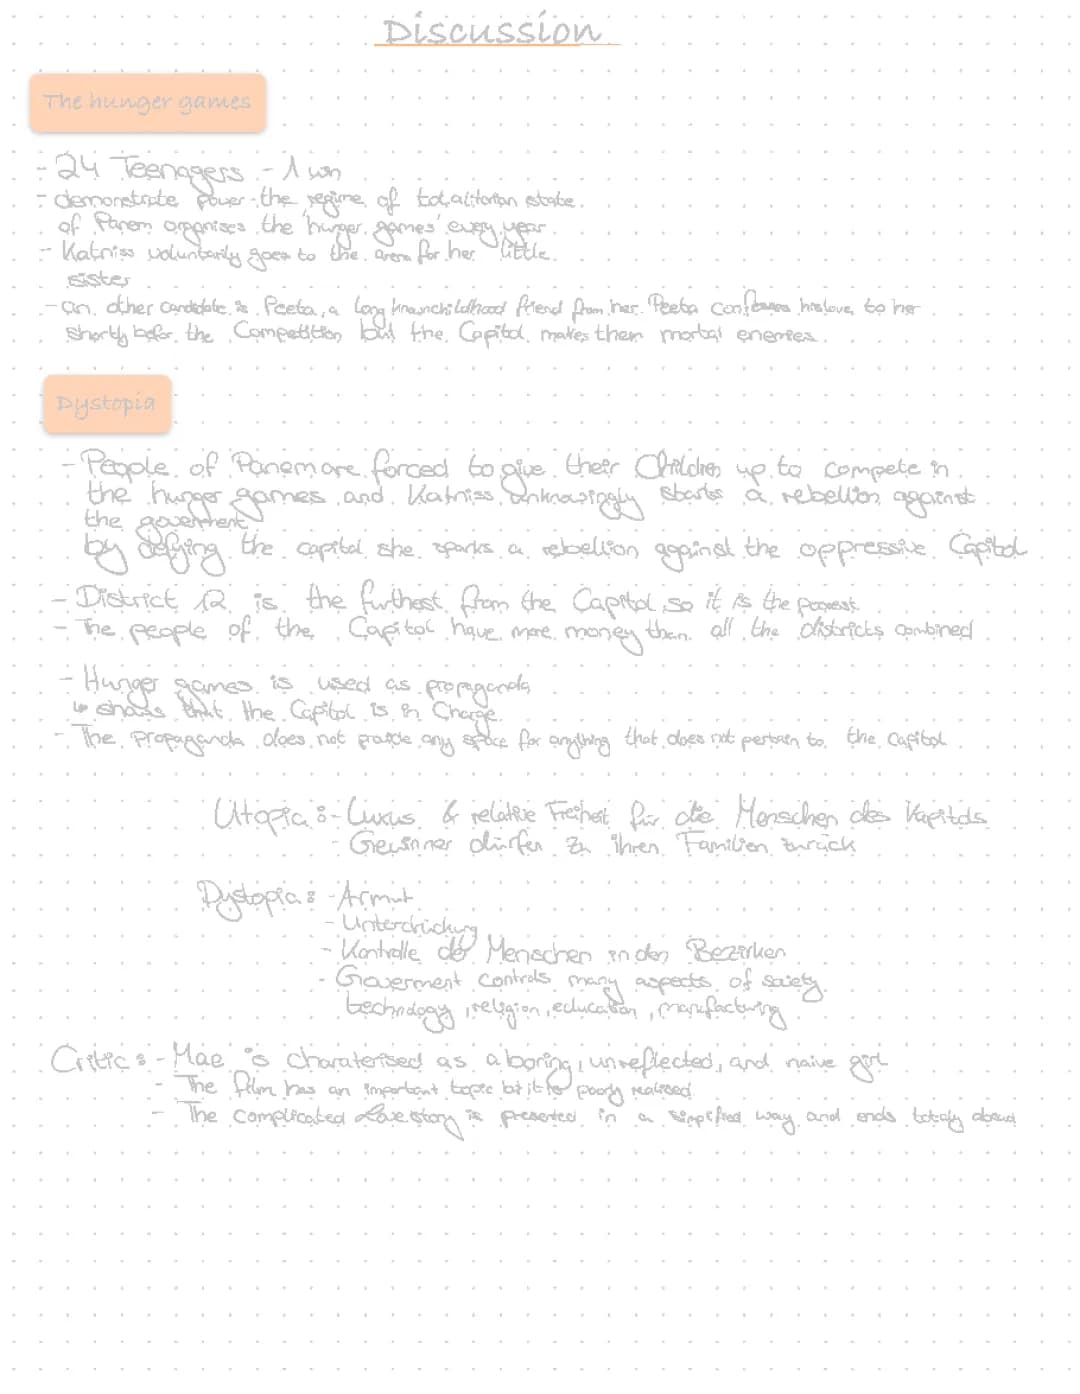 Discussion
The hunger games
- 24 Teenagers - 1 win
- demonstrate power the regime of totalitarian state
of Panem organises the 'hunger games' every year
- Katniss voluntarily goes to the arena for her little
sister
- an other candidate is Peeta, a long known childhood friend from her. Peeta confesses his love to her
shortly befor the Competition but the Capitol makes them mortal enemies.
Dystopia
- People of Panem are forced to give their Children up to compete in
the hunger games and Katniss unknowingly starts a rebellion against
the goverment
by defying the capital she sparks a rebellion against the oppressive Capitol
- District 12 is the furthest from the Capitol so it is the poorest
- The people of the Capitol have more money than all the districts combined
- Hunger games is used as propaganda
↳ shows that the Capitol is in Charge
- The propaganda does not provide any space for anything that does not pertain to the Capitol
Utopia: - Luxus & relative Freiheit für die Menschen des Kapitols
- Gewinner dürfen zu ihren Familien zurück
Dystopia: - Armut
- Unterdrückung
- Kontrolle der Menschen in den Bezirken
- Goverment controls many aspects of society
technology, religion, education, manufacturing
Critic: - Mae is charaterised as a boring, unreflected, and naive girl
- The film has an important topic but it is poorly realised
- The complicated Love story is presented in a simplified way and ends totaly